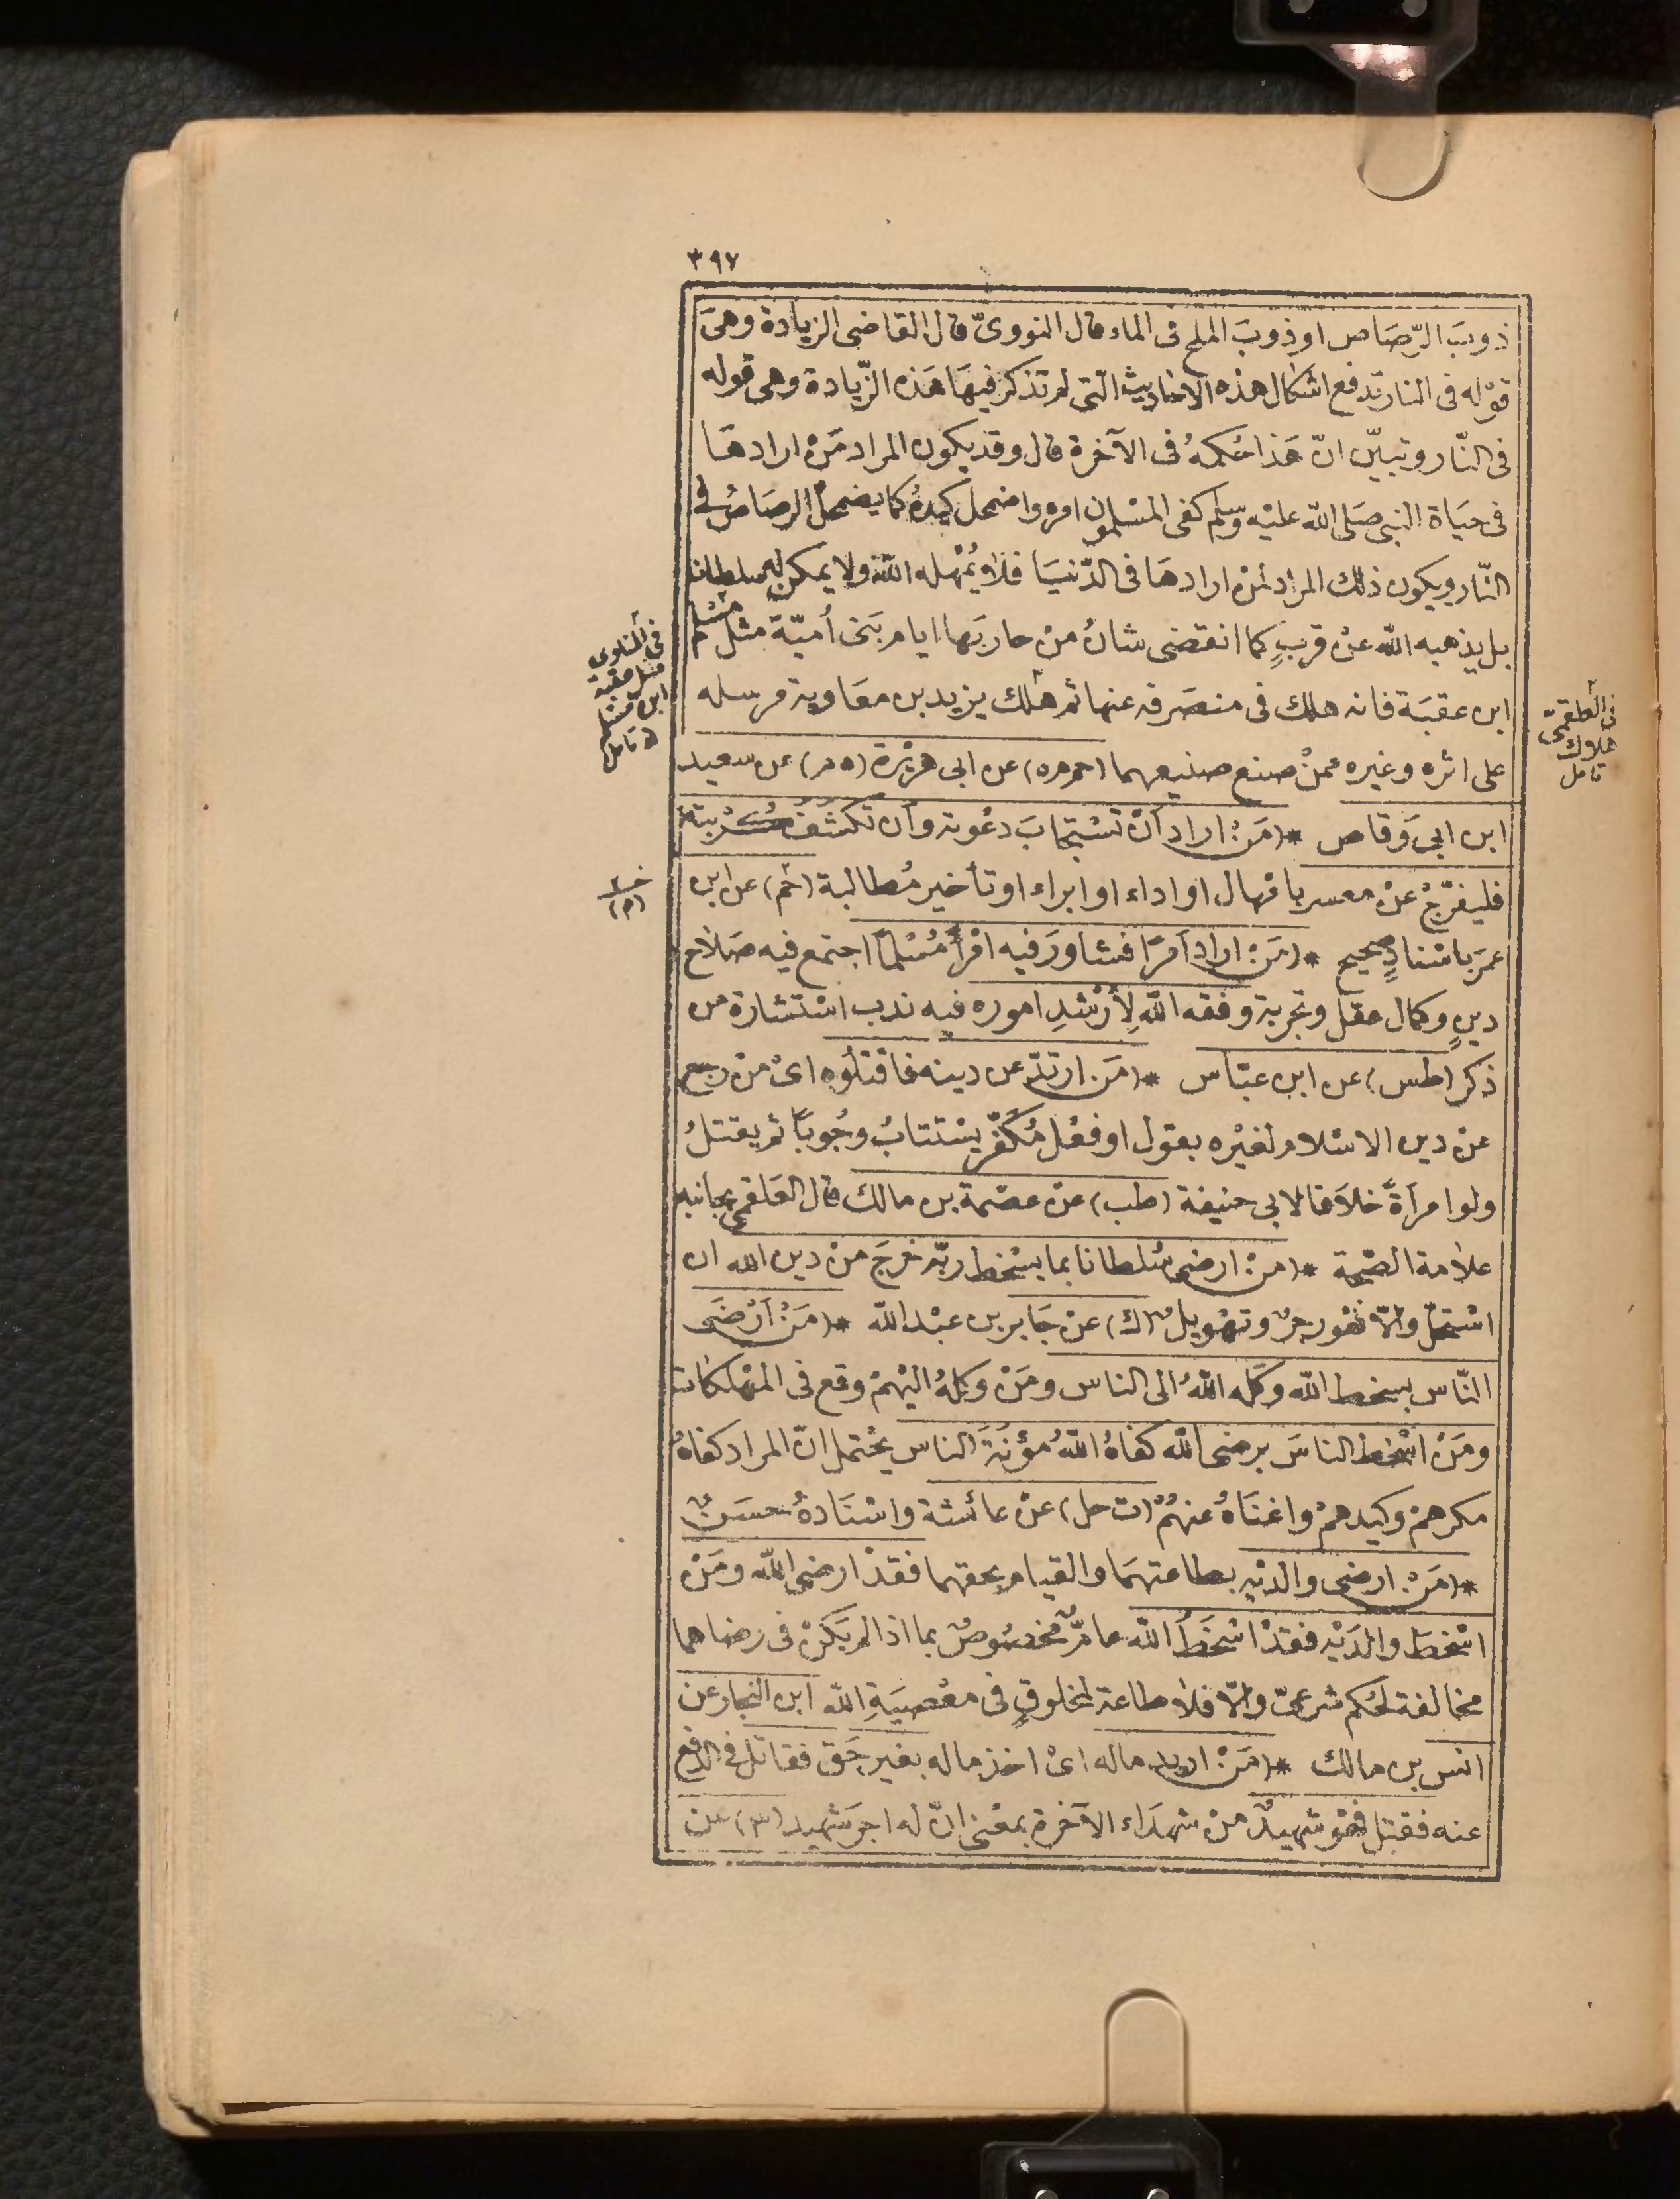 ٣٩٧
ذوبَ الرّصَاص او ذوبَ الملح فى الماء قال النووىّ قال القاضى الزيادة وهىَ
قوْله فى النار تدفع اشكال هذه الاحاديث الّتى لم تذكر فيهَا هَذه الزّيادة وهى قوله
فى النّار وتبيّن انّ هَذا حُكمهُ فى الآخرة قال وقد يكون المراد مَنْ ارادهَا
فى حيَاة النبى صَلى الله عليْه وسلم كفى المسْلمون امره واضمحل كيدهُ كما يضمحلّ الرصَاصُ فى
النّار ويكون ذلك المراد لمنْ ارادهَا فى الدّنيَا فلا يُمْهله اللهُ ولا يمكن له سلطان
بل يذهبه الله عنْ قربٍ كما انقضى شانُ منْ حاربَها ايام بَنى أُميّة مثل مسْلم
ابن عقبَة فانه هلك فى منصَرفه عنها ثم هلك يزيد بن معَاوية مرسله
على اثره وغيره ممنْ صنع صنيعهما (حم م ه) عن ابى هرَيْرَة (م) عن سعيد
ابن ابى وَقاص * (مَنْ اراد أنْ تسْتجَابَ دعْوته وأن تكشفَ كُرْبته
فليفرّجْ عنْ معسر بامْهال او اداء او ابراء او تأخير مُطالبة (حم) عن ابن
عمَر باسْنادٍ صحيح * (مَنْ اراد أمرًا فشاورَ فيه امْرأً مُسْلمًا اجتمع فيه صَلاح
دينٍ وكمال عقل وتجربة وفقه اللهُ لِأرْشدِ اموره فيه ندب اسْتشارة من
ذكر (طس) عن ابن عبّاس * (مَن ارتدّ عن دينه فاقتلُوه اىْ منْ رجع
عنْ دين الاسْلام لغيْره بقول او فعْل مُكفّر يسْتتابُ وجُوبًا ثم يقتلُ
ولو امرأةً خلاَفا لابى حنيفة (طب) عنْ عصْمة بن مالك قال العَلقمى بجانبه
علاَمة الصّحة * (منْ ارضى سُلطانا بما يسْخط ربّه خرجَ منْ دين الله ان
اسْتحلّ والّا فهُو زجرٌ وتهْويلٌ (ك) عنْ جَابر بن عبْد الله * (مَنْ أرْضَى
النّاس بسخط الله وكَله اللهُ الى الناس ومَنْ وكلهُ اليْهمْ وقع فى المهْلكات
ومَنْ اسْخط الناسَ برضى الله كفاهُ اللهُ مؤنَةَ الناس يحْتمل انّ المراد كفاهُ
مكرهمْ وكيدهمْ واغنَاهُ عنهُمْ (ت حل) عنْ عائشة واسْنَادهُ حسَنٌ
* (مَنْ ارضى والديْه بطاعتهمَا والقيام بحقهما فقدْ ارضى الله ومَنْ
اسْخطَ والدَيْه فقدْ اسْخَطَ اللهَ عامّ مخصُوصٌ بما اذا لم يَكنْ فى رضاهما
مخالفة لحُكم شرعىّ والّا فلا طاعة لمخلوقٍ فى معْصيَةِ الله ابن النجار عن
انس بن مالك * (مَنْ اريد ماله اىْ اخذ ماله بغير حَق فقاتل فى الدفع
عنه فقتل فهُو شهيدٌ منْ شهدَاء الآخرة بمعْنى انّ له اجرَ شهيد (٣) عن
فى المناوى
مثل عقبة
ابن مسْلم
ه تامل
فى العلقمىّ
هلاك
تامل
(م)